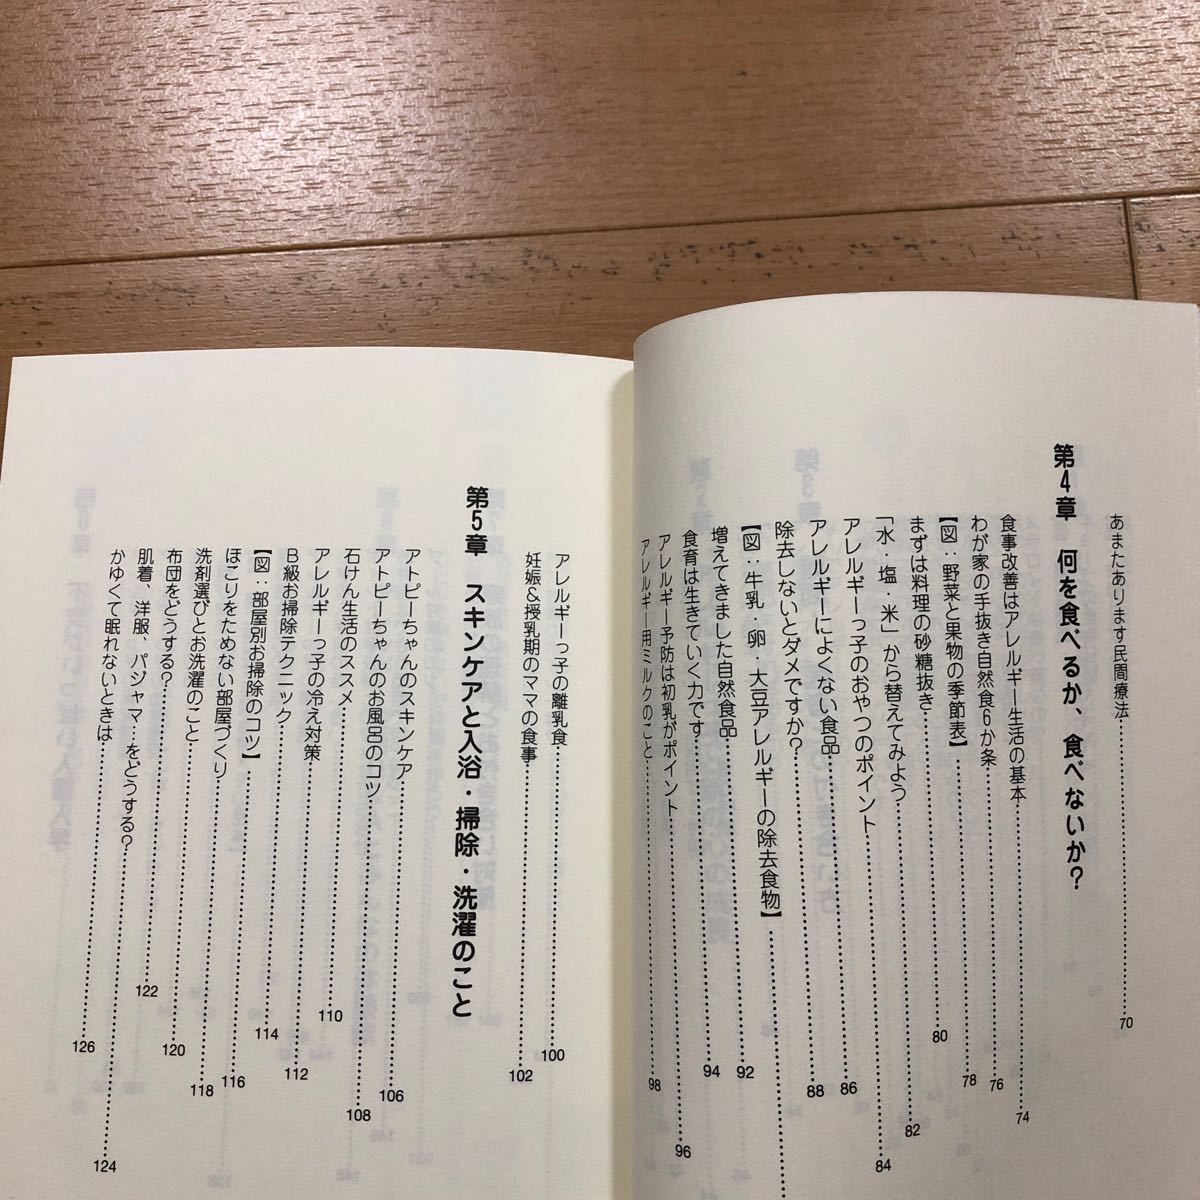 あまたあります民間療法……70
第4章 何を食べるか、食べないか?
食事改善はアレルギー生活の基本……74
わが家の手抜き自然食6か条……76
【図：野菜と果物の季節表】……78
まずは料理の砂糖抜き……80
「水・塩・米」から替えてみよう……82
アレルギーっ子のおやつのポイント……84
アレルギーによくない食品……86
除去しないとダメですか?……88
【図：牛乳・卵・大豆アレルギーの除去食物】……
増えてきました自然食品……92
食育は生きていく力です……94
アレルギー予防は初乳がポイント……96
アレルギー用ミルクのこと……98
アレルギーっ子の離乳食……100
妊娠&授乳期のママの食事……102
第5章 スキンケアと入浴・掃除・洗濯のこと
アトピーちゃんのスキンケア……106
アトピーちゃんのお風呂のコツ……106
石けん生活のススメ……108
アレルギーっ子の冷え対策……110
B級お掃除テクニック……112
【図：部屋別お掃除のコツ】……114
ほこりをためない部屋づくり……116
洗剤選びとお洗濯のこと……118
布団をどうする?……120
肌着、洋服、パジャマ…をどうする?……122
かゆくて眠れないときは……124
126